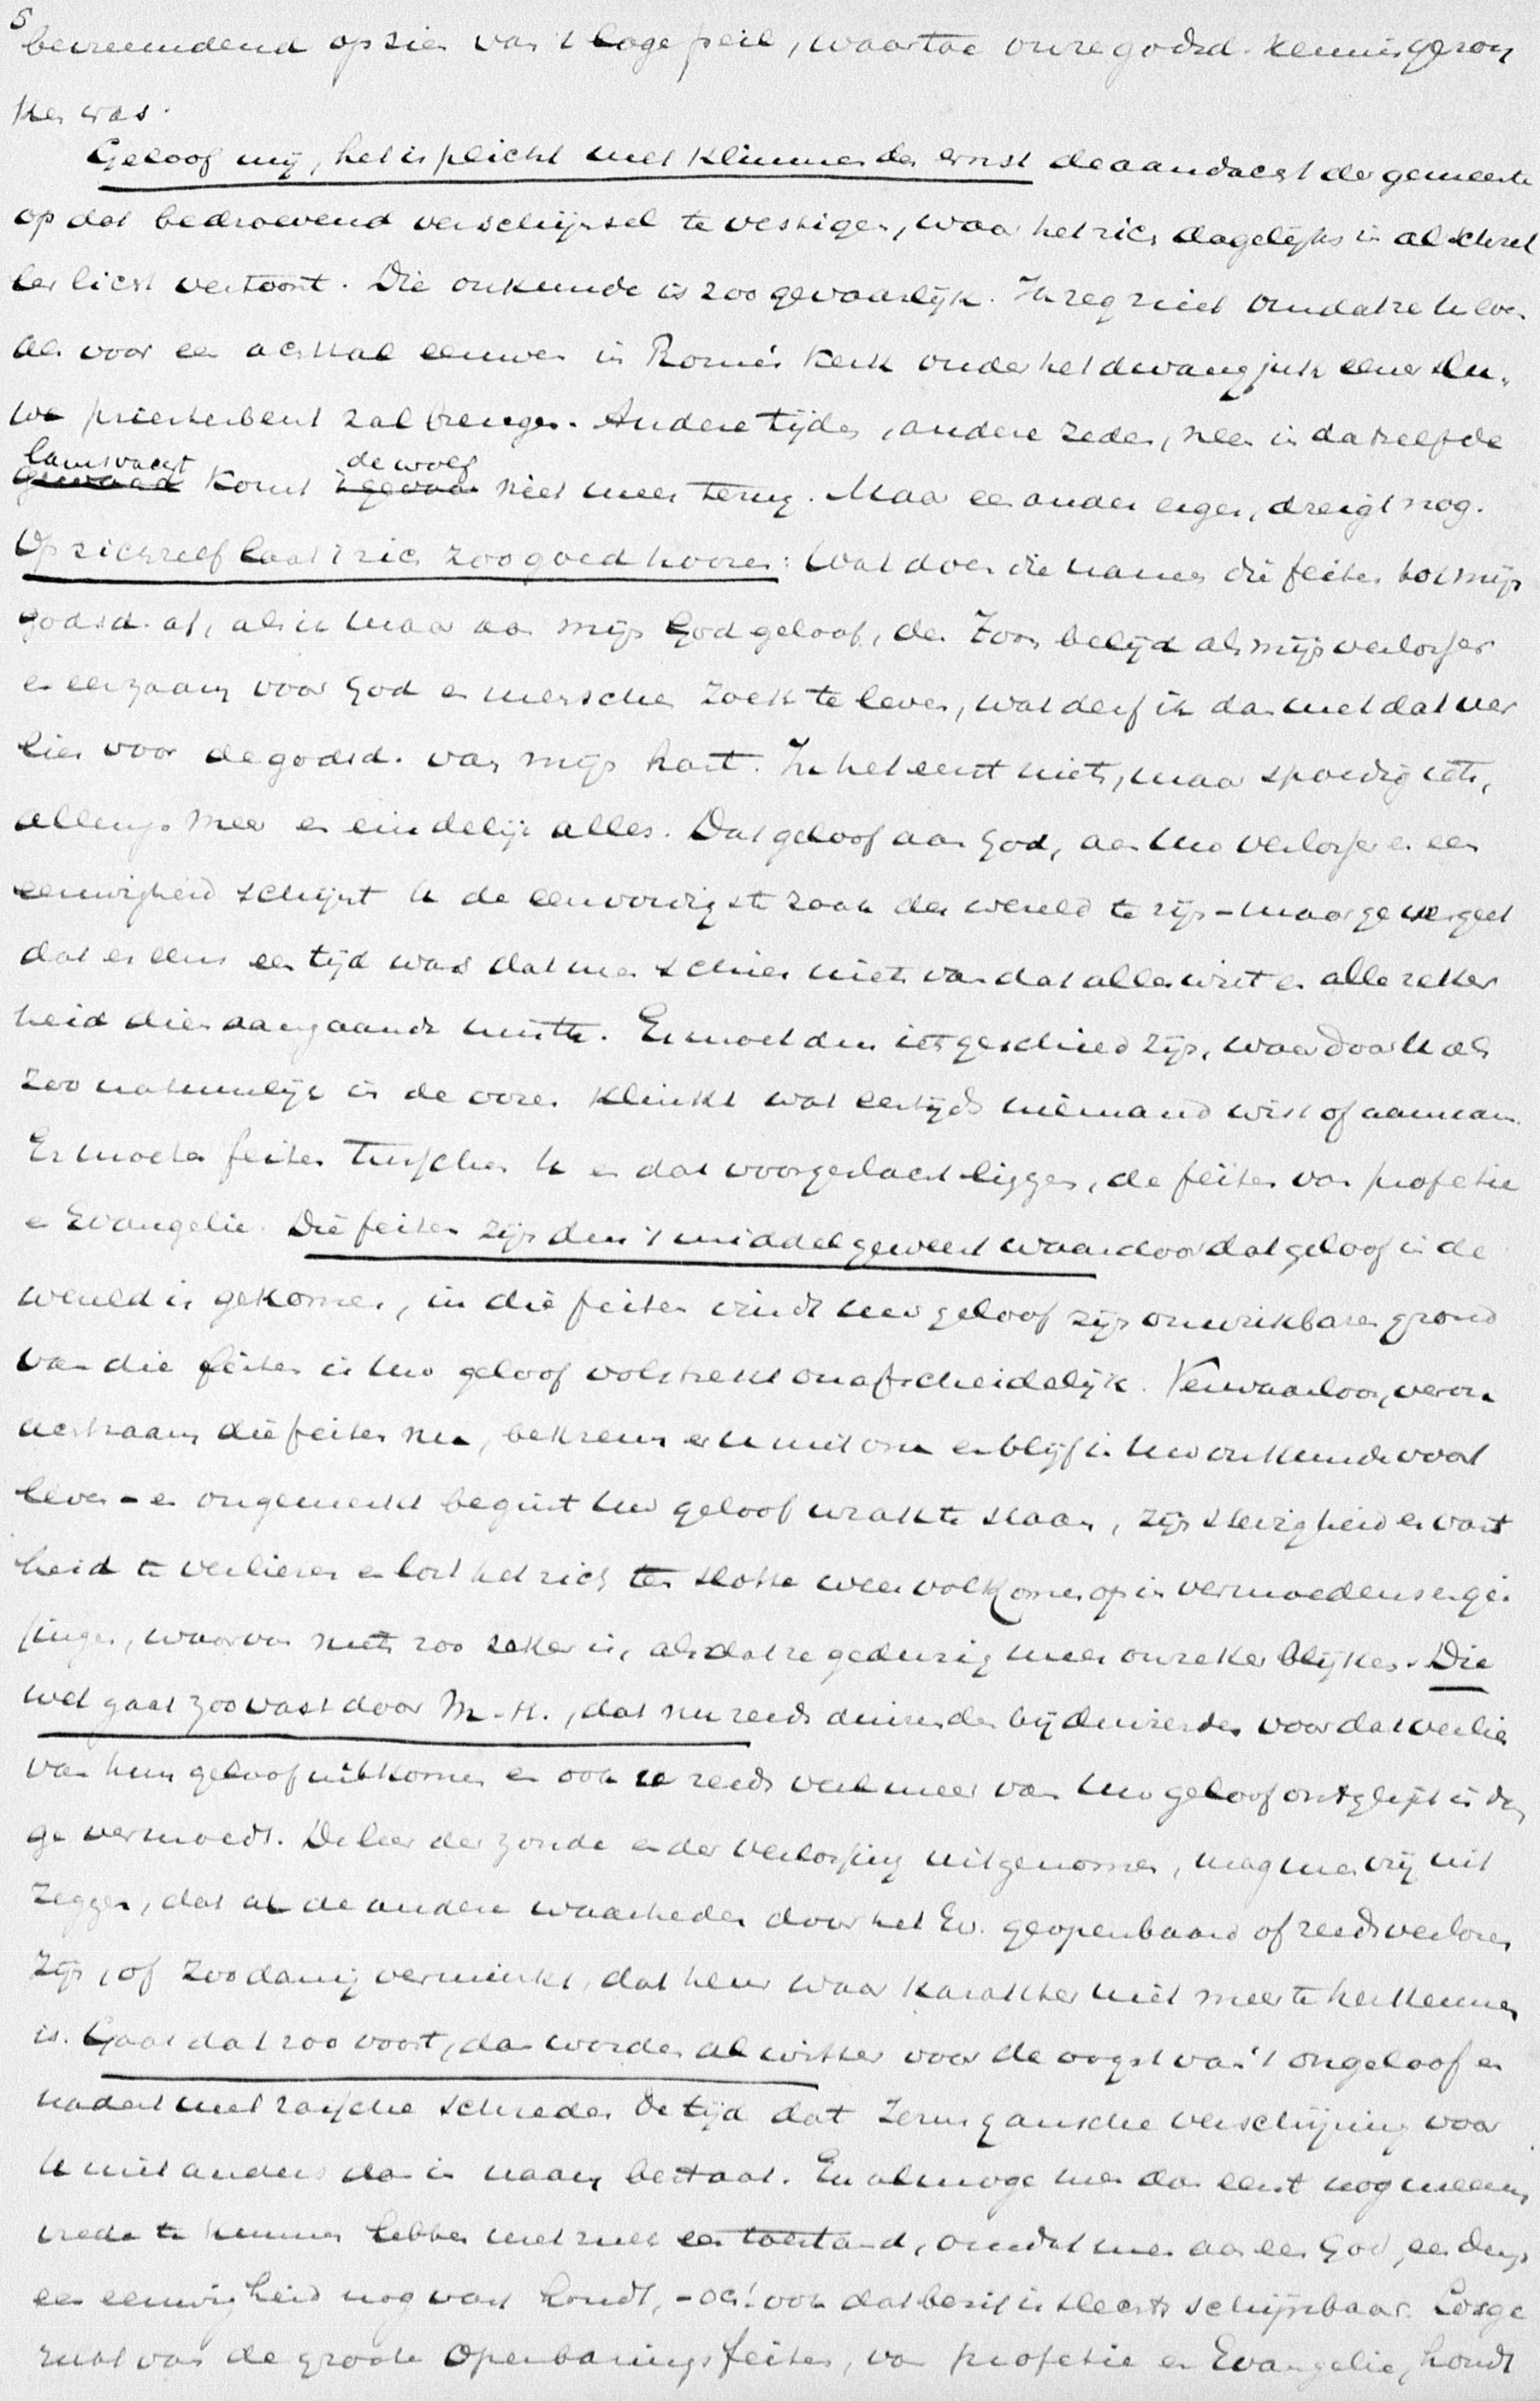 5
bevreemdend opzien van 't lage peil, waartoe onze godsd. kennis gezon
ken was.
Geloof mij, het is plicht met klimmenden ernst de aandacht der gemeente
op dat bedroevend verschijnsel te vestigen, waar het zich dagelijks in al schrel
ler licht vertoont. Die onkunde is zoo gevaarlijk. Ik zeg niet omdat ze U even
als voor een achttal eeuwen in Rome's Kerk onder het dwangjuk eener slu-
we priesterbent zal brengen. Andere tijden, andere zeden, neen in datzelfde
lamsvacht de wolf
gewaad komt niet meer terug. Maar een ander erger, dreigt nog.
Op zichzelf laat 't zich zoo goed hooren: Wat doen die namen die feiten tot mijn
godsd. af, als ik maar aan mijn God geloof, den Zoon belijd als mijn verlosser
en eerzaam voor God en menschen zoek te leven, wat derf ik dan met dat ver
lies voor de godsd. van mijn hart. In het eerst niets, maar spoedig iets,
allengs meer en eindelijk alles. Dat geloof aan God, aan Uw verlosser en een
eeuwigheid schijnt U de eenvoudigste zaak der wereld te zijn - maar ge vergeet
dat er eens een tijd was dat men schier niets van dat alles wist en alle zeker
heid dien aangaande miste. Er moet dus iets geschied zijn, waardoor U als
zoo natuurlijk in de ooren klinkt wat eertijds niemand wist of aannam.
Er moeten feiten tusschen U en dat voorgeslacht liggen, de feiten van profetie
en Evangelie. Die feiten zijn dus 't middel geweest waardoor dat geloof in de
wereld is gekomen, in die feiten vindt Uw geloof zijn onwrikbaren grond
van die feiten is Uw geloof volstrekt onafscheidelijk. Verwaarloos, veron
achtzaam die feiten nu, bekreun er U niet om en blijf in Uw onkunde voort
leven - en ongemerkt begint Uw geloof wrak te staan, zijn stevigheid en vast
heid te verliezen en lost het zich ten slotte weer volkomen op in vermoedens en gis
singen, waarvan niets zoo zeker is, als dat ze gedurig meer onzeker blijken. Die
wet gaat zoo vast door M.H., dat nu reeds duizenden bij duizenden voor dat verlies
van hun geloof uitkomen en ook U reeds veel meer van Uw geloof ontglipt is dan
ge vermoedt. De leer der zonde en der verlossing uitgenomen, mag men vrij uit
zeggen, dat al de andere waarheden door het Ev. geopenbaard of reeds verloren
zijn, of zoodanig verminkt, dat heur waar karakter niet meer te herkennen
is. Gaat dat zoo voort, dan worden al witter voor de oogst van 't ongeloof en
nadert met rassche schreden de tijd dat Jezus gansche verschijning voor
U niet anders dan in naam bestaat. En al moge men dan eerst nog meenen
vrede te kunnen hebben met zulk een toestand, omdat men aan een God, een deugd
een eeuwigheid nog vast houdt, - och! ook dat bezit is slechts schijnbaar. Losge
rukt van de groote Openbaringsfeiten, van profetie en Evangelie, houdt